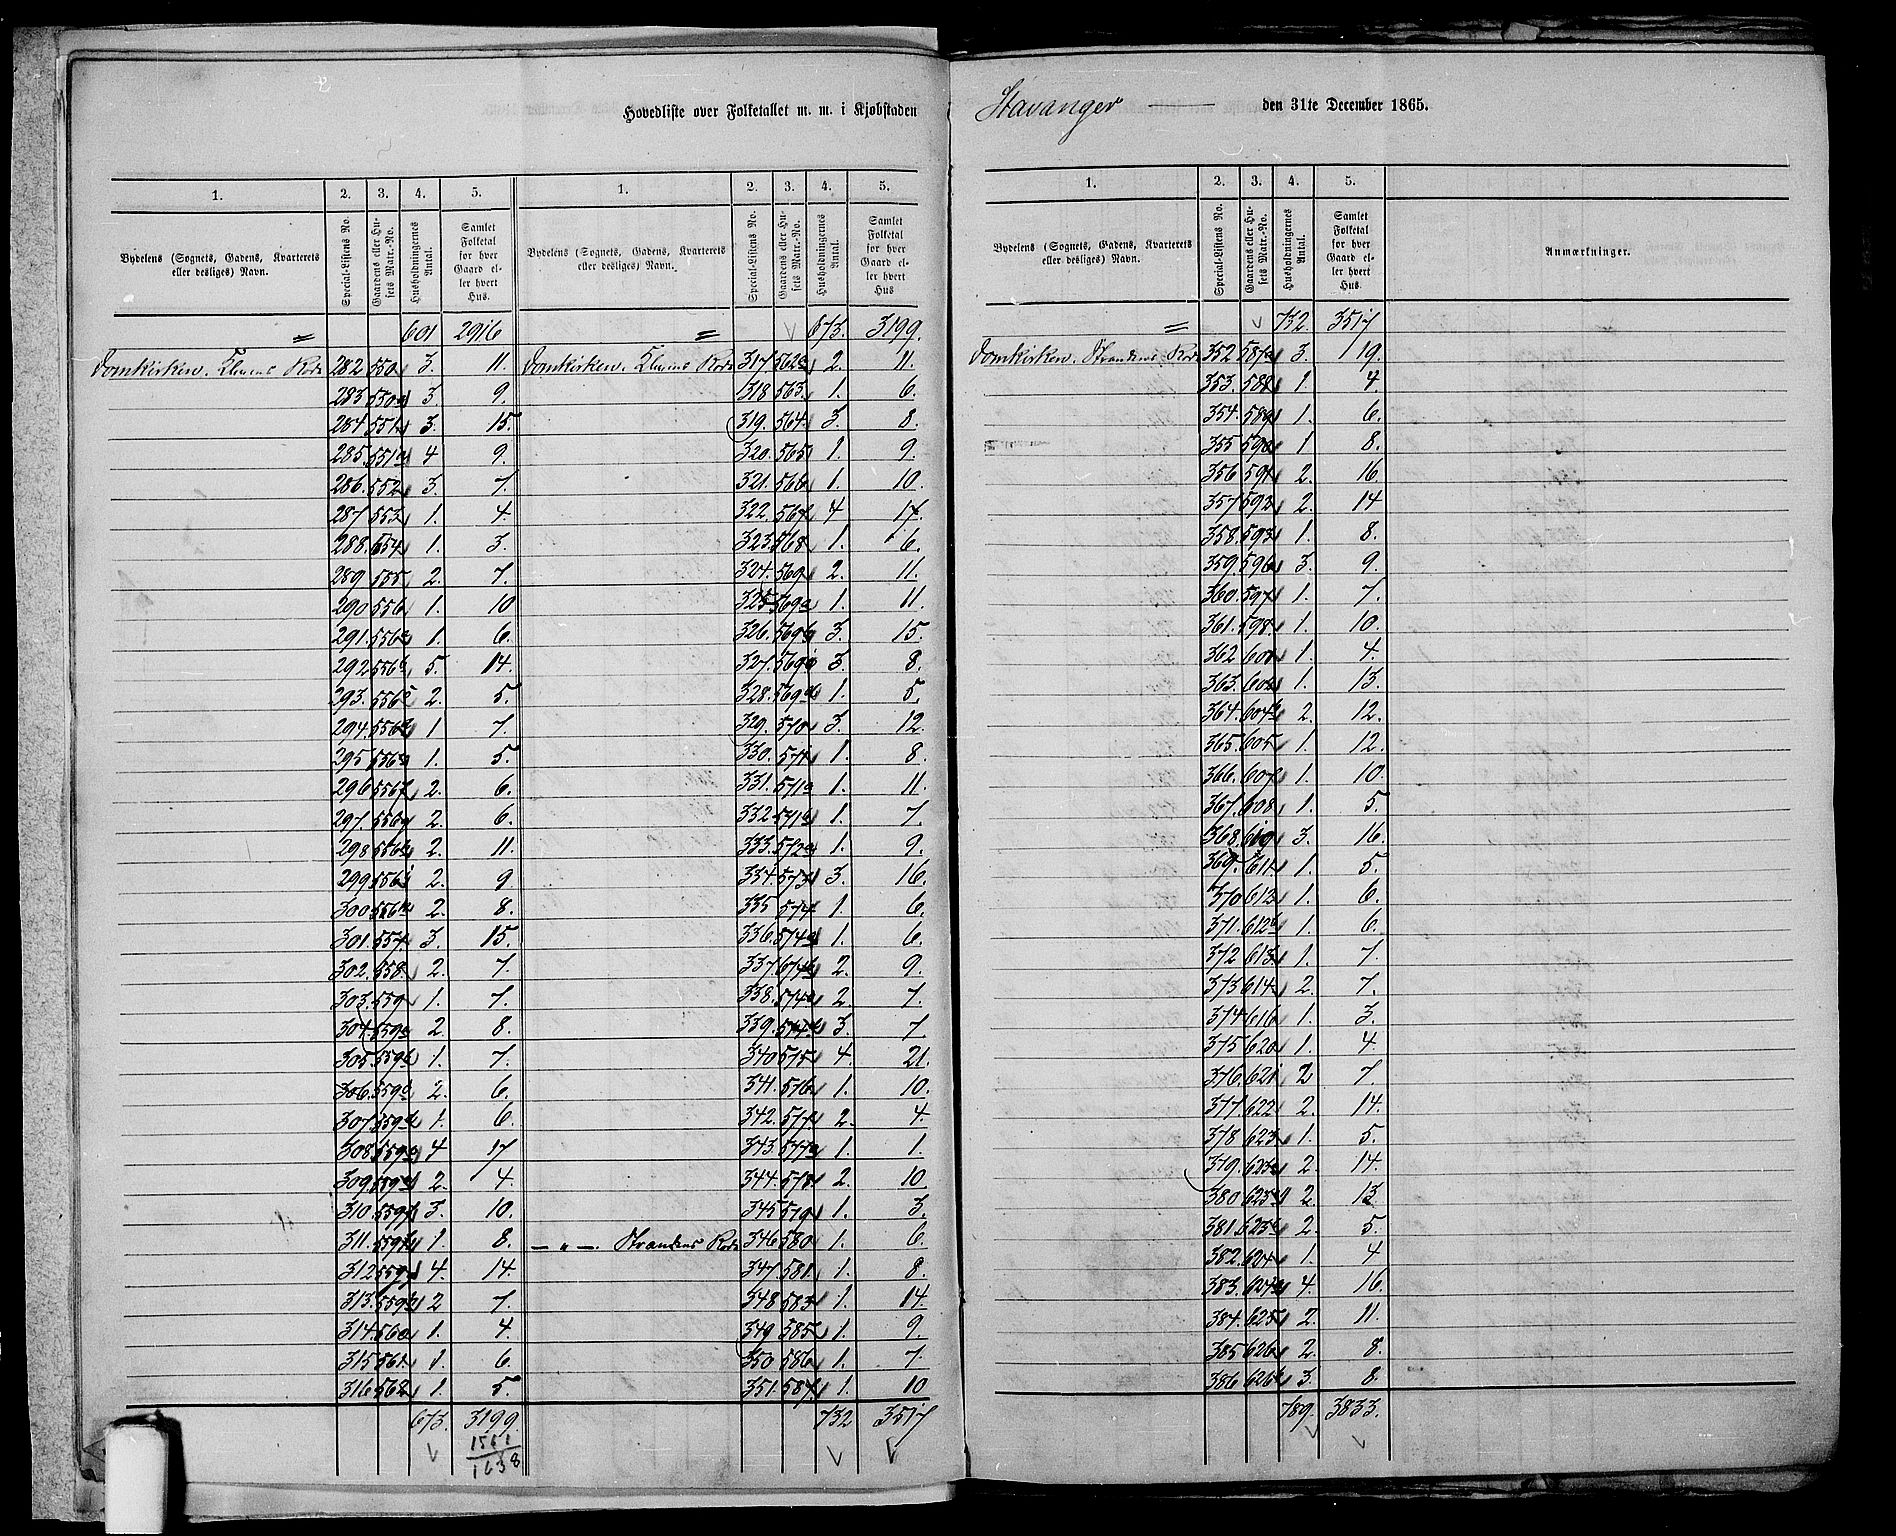 Hovedliste over Folketallet m. m. i Kjøbstaden Stavanger den 31te December 1865.
1. 2. 3. 4. 5. 1. 2. 3. 4. 5.
Bydelens (Sognets, Gadens, Kvarterets eller desliges) Navn. Special-Listens No. Gaardens eller Husets Matr.-No. Husholdningernes Antal. Samlet Folketal for hver Gaard eller hvert Hus. Bydelens (Sognets, Gadens, Kvarterets eller desliges) Navn. Special-Listens No. Gaardens eller Husets Matr.-No. Husholdningernes Antal. Samlet Folketal for hver Gaard eller hvert Hus
= 601 2916
Domkirken. Klevens Rode 282 550 3. 11.
283 550a 3. 9.
284 551 3. 15.
285. 551a 4 9.
286. 552 3. 7.
287 553 1. 4.
288. 554 1. 3.
289 555 2. 7.
290 556 1. 10
291. 556a 1. 6.
292 556b 5. 14.
293. 556c 2. 5.
294. 556d 1 7.
295 1. 5.
296 2. 6.
297. 2. 6.
298 2. 11.
299 2. 9
300 2. 8.
301. 557. 3. 15.
302. 558. 2. 7.
303. 559 1. 7.
304. 559a 2. 8.
305 559b 1. 7.
306. 559c 2. 6.
307 559d 1. 6.
308 559e 4 17
309 2. 4.
310. 3. 10.
311. 1. 8.
312 4. 14.
313. 2 7.
314 560 1. 4.
315 561 1. 6.
316 562 1. 5.
673. 3199.
1561
1638
= 673. 3199.
Domkirken. Klevens Rode 317 562a 2. 11.
318 563. 1. 6.
319. 564 3. 8.
320. 565 1. 9.
321. 566 1. 10.
322. 567 4 17.
323. 568 1. 6.
324. 569 2. 11.
325 569a 1. 11.
326. 569b 3. 15.
327. 569c 3. 8.
328. 569d 1. 5.
329. 570 3. 12.
330. 571 1. 8.
331. 571a 1. 11.
332. 571b 1. 7.
333. 572a 1. 9.
334. 573 3. 16.
335 574 1. 6.
336. 574a 1. 6.
337. 574b 2. 9.
338. 574c 2. 7.
339. 574d 3. 7
340 575 4. 21.
341. 576 1. 10.
342. 577 2. 4.
343. 577a 1. 1.
344. 578 2. 10
345 579 1. 3.
— „ — Strandens Rode 346 580 1. 6
347 581. 1. 8.
348 583 1. 14.
349 585 1. 9
350 586 1. 7.
351. 587 1. 10
732 3517
1. 2. 3. 4. 5.
Bydelens (Sognets, Gadens, Kvarterets eller desliges) Navn. Special-Listens No. Gaardens eller Husets Matr.-No. Husholdningernes Antal. Samlet Folketal for hver Gaard eller hvert Hus. Anmærkninger.
= 732. 3517
Domkirken. Strandens Rode 352 587a 3. 19.
353. 588 1. 4.
354. 589 1. 6.
355 590 1 8.
356 591 2. 16
357 592 2. 14
358. 593 1. 8.
359. 596 3. 9.
360. 597 1. 7.
361. 598. 1. 10.
362 601 1. 4.
363. 602 1. 13.
364. 604b 2. 12.
365. 605 1. 12.
366. 607 1. 10.
367. 608 1. 5.
368. 609 3. 16.
369. 611 1. 5.
370 612 1. 6.
371. 612b 1. 6.
372 613. 1. 7.
373 614 2. 7.
374 616 1. 3.
375 620 1. 4.
376. 621 2 7.
377. 622 2. 14.
378 623 1. 5.
379. 623a 2. 14.
380 623b 2. 13
381. 623c 2. 5.
382. 624 1. 4
383. 624a 4. 16.
384. 625 2. 11.
385 626 2. 8.
386 626b 3. 8.
789. 3833.